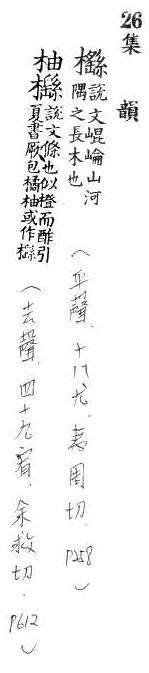 26集　韻
櫾說文崐崘山河隅之長木也（平聲．十八尤．夷周切．P258）
柚櫾說文條也似橙而酢引夏書厥包橘柚或作櫾（去聲．四十九宥．余救切．P612）